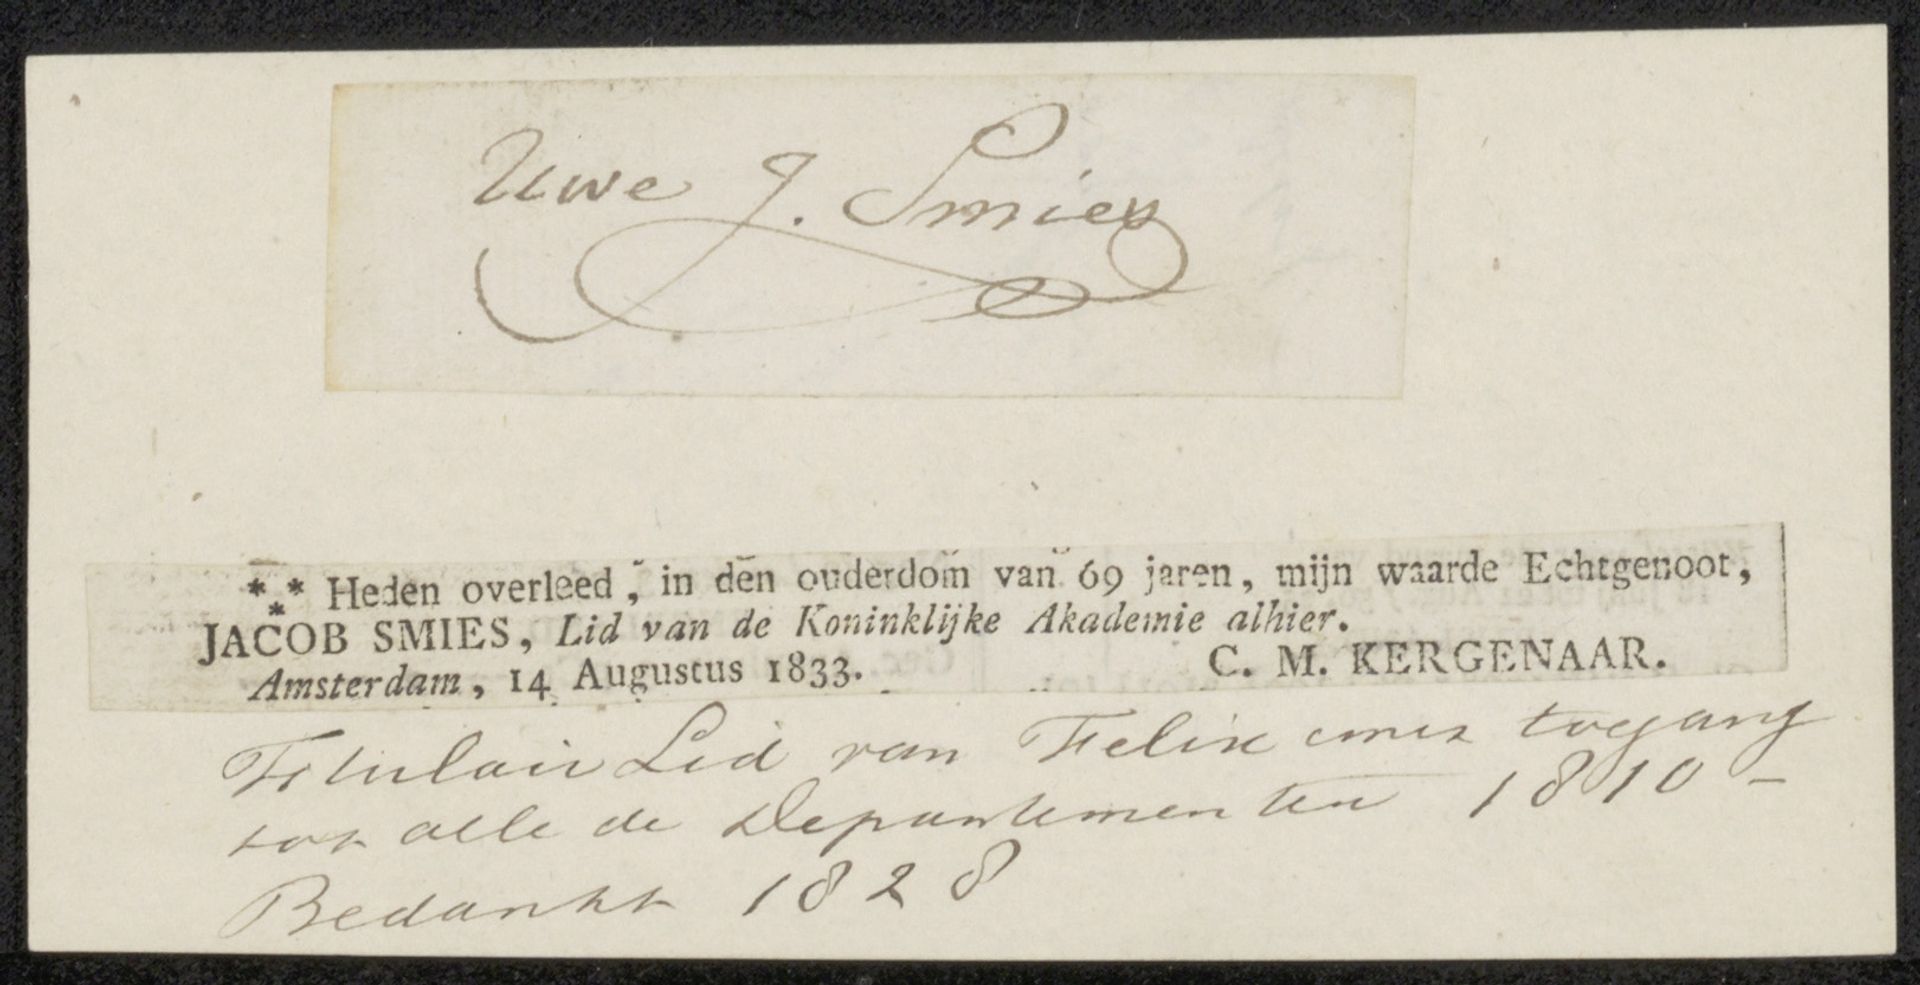 Uwe J. Smies
*⁎* Heden overleed, in den ouderdom van 69 jaren, mijn waarde Echtgenoot,
JACOB SMIES, Lid van de Koninklijke Akademie alhier.
Amsterdam, 14 Augustus 1833. C. M. KERGENAAR.
Titulair Lid van Felix met toegang
tot alle de Departementen 1810 –
Bedankt 1828